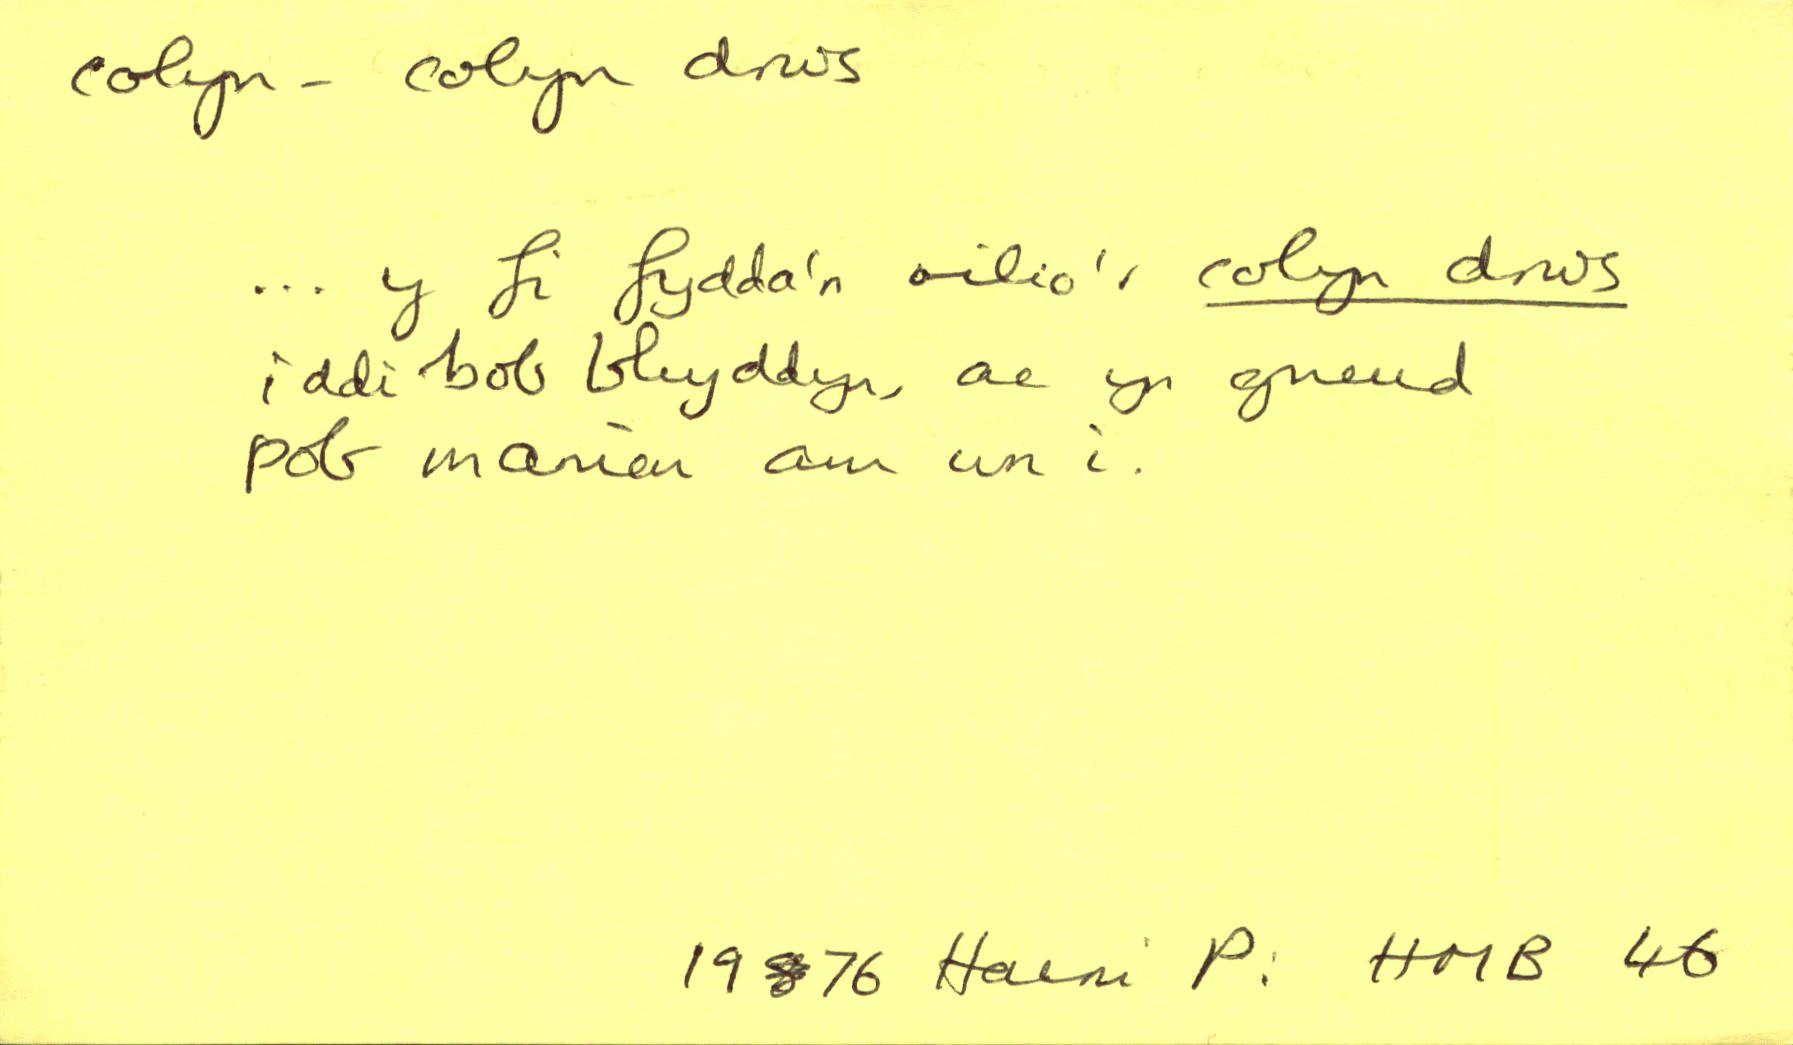 colyn - colyn drws
... y fi fydda'n oilio'r colyn drws
iddi bob blwyddyn, ac yn gneud
pob marieu am un i.
1976 Harri P: HMB 46